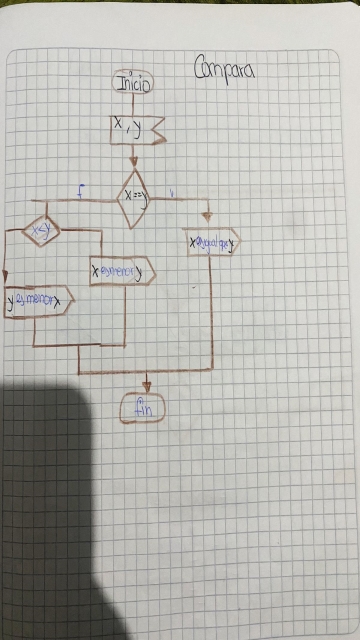 Compara
Inicio
x, y
x==y
f
v
x<y
x es igual que y
x es menor y
y es menor x
fin